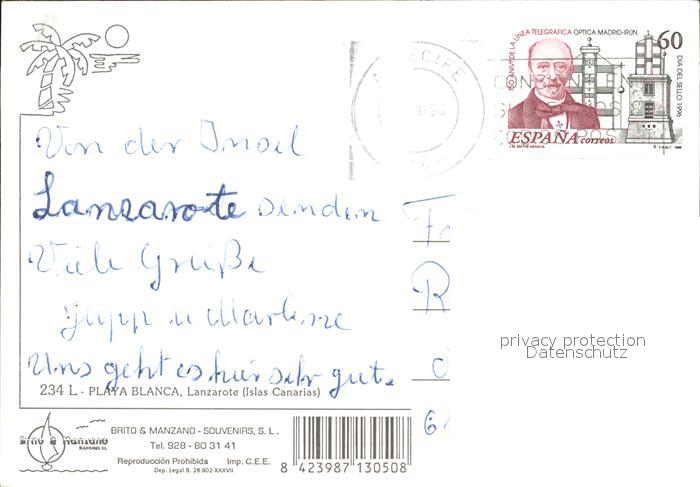 Von der Insel
Lanzarote senden
Viele Grüße
Jupp u Marlene
Uns geht es hier sehr gut.
234 L - PLAYA BLANCA, Lanzarote (Islas Canarias)
Brito & Manzano
BRITO & MANZANO - SOUVENIRS, S. L.
Tel. 928 - 80 31 41
Reproducción Prohibida Imp. C.E.E.
Dep. Legal B. 28.802-XXXVII
8 423987 130508
150 ANIV. DE LA LINEA TELEGRAFICA ÓPTICA MADRID-IRÚN
60
DIA DEL SELLO 1996
ESPAÑA correos
ARRECIFE
Fr
R
6
privacy protection
Datenschutz